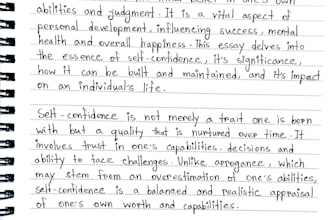 belief in one's own
abilities and judgment. It is a vital aspect of
personal development, influencing success, mental
health and overall happiness. This essay delves into
the essence of self-confidence, it's significance,
how it can be built and maintained, and its impact
on an individual's life.
Self-confidence is not merely a trait one is born
with but a quality that is nurtured over time. It
involves trust in one's capabilities, decisions and
ability to face challenges. Unlike arrogance, which
may stem from an overestimation of one's abilities,
self-confidence is a balanced and realistic appraisal
of one's own worth and capabilities.